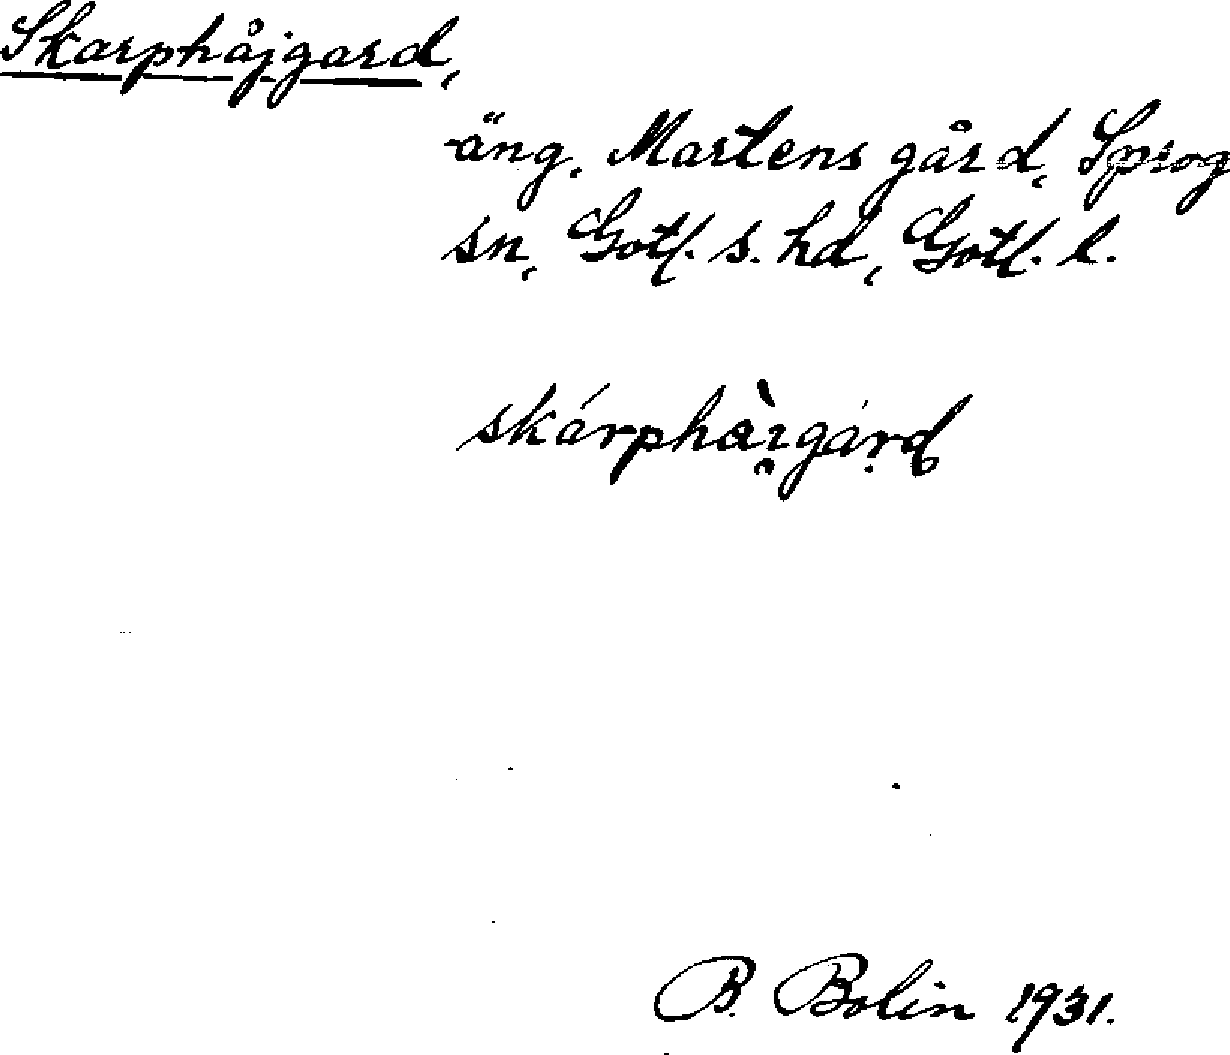 Skarphåjgard,
äng, Martens gård, Sprog
sn, Gotl. s. hd, Gotl. l.
B. Bolin 1931.